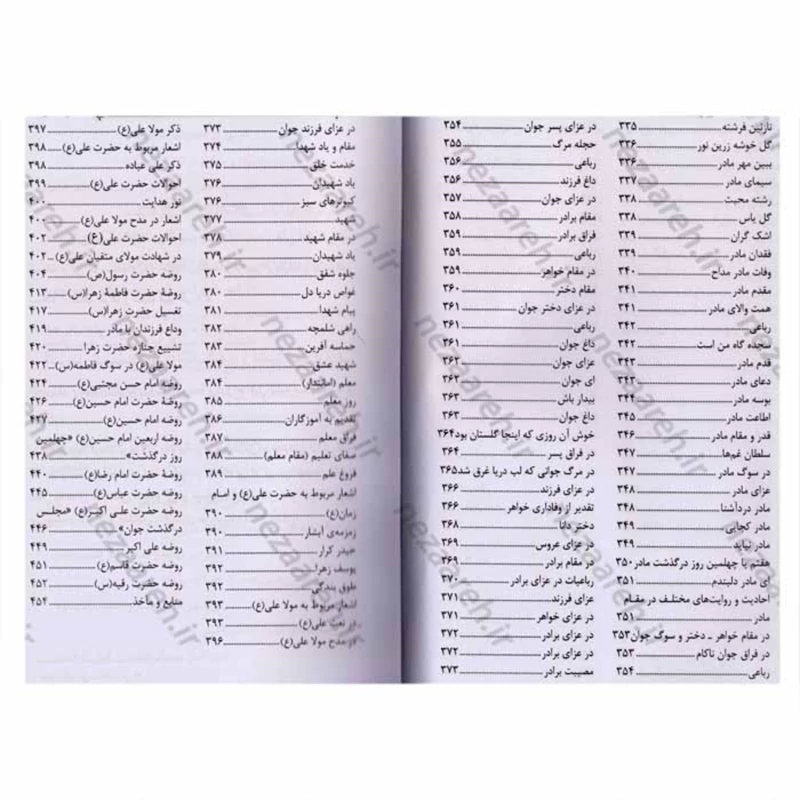 نازنین فرشته ۳۳۵
گل خوشه زرین نور ۳۳۶
ببین مهر مادر ۳۳۶
سیمای مادر ۳۳۷
رشته محبت ۳۳۸
گل یاس ۳۳۸
اشک گران ۳۳۹
فقدان مادر ۳۳۹
وفات مادر مداح ۳۴۰
مقدم مادر ۳۴۱
همت والای مادر ۳۴۱
رباعی ۳۴۲
سجده گاه من است ۳۴۲
قدم مادر ۳۴۳
دعای مادر ۳۴۳
بوسه مادر ۳۴۴
اطاعت مادر ۳۴۵
قدر و مقام مادر ۳۴۶
سلطان غم‌ها ۳۴۷
در سوگ مادر ۳۴۷
عزای مادر ۳۴۸
مادر دردآشنا ۳۴۸
مادر کجایی ۳۴۹
مادر نیاید ۳۴۹
هفتم یا چهلمین روز درگذشت مادر ۳۵۰
ای مادر دلبندم ۳۵۱
احادیث و روایت‌های مختلف در مقام
مادر ۳۵۱
در مقام خواهر ـ دختر و سوگ جوان ۳۵۳
در فراق جوان ناکام ۳۵۳
رباعی ۳۵۴
در عزای پسر جوان ۳۵۴
حجله مرگ ۳۵۵
رباعی ۳۵۶
داغ فرزند ۳۵۶
در عزای جوان ۳۵۷
مقام برادر ۳۵۸
فراق برادر ۳۵۹
رباعی ۳۵۹
در مقام خواهر ۳۵۹
مقام دختر ۳۶۰
در عزای دختر جوان ۳۶۱
رباعی ۳۶۱
داغ جوان ۳۶۱
عزای جوان ۳۶۲
ای جوان ۳۶۲
بیدار باش ۳۶۳
داغ جوان ۳۶۳
خوش آن روزی که اینجا گلستان بود ۳۶۴
در فراق پسر ۳۶۴
در مرگ جوانی که لب دریا غرق شد ۳۶۵
در عزای فرزند ۳۶۶
تقدیر از وفاداری خواهر ۳۶۶
دختر دانا ۳۶۸
در عزای عروس ۳۶۹
در مقام برادر ۳۶۹
رباعیات در عزای برادر ۳۷۰
عزای فرزند ۳۷۱
در عزای خواهر ۳۷۱
در عزای برادر ۳۷۲
در عزای برادر ۳۷۲
مصیبت برادر ۳۷۳
در عزای فرزند جوان ۳۷۳
مقام و یاد شهدا ۳۷۴
خدمت خلق ۳۷۵
یاد شهیدان ۳۷۶
کبوترهای سبز ۳۷۶
شهید ۳۷۷
در مقام شهید ۳۷۸
یاد شهیدان ۳۷۹
جلوه شفق ۳۸۰
غواص دریا دل ۳۸۰
پیام شهدا ۳۸۱
راهی شلمچه ۳۸۲
حماسه آفرین ۳۸۳
شهید عشق ۳۸۴
معلم (امانتدار) ۳۸۴
روز معلم ۳۸۵
تقدیم به آموزگاران ۳۸۶
فراق معلم ۳۸۷
صفای تعلیم (مقام معلم) ۳۸۸
فروغ علم ۳۸۹
اشعار مربوط به حضرت علی(ع) و امام
زمان(ع) ۳۹۰
زمزمه‌ی آبشار ۳۹۰
حیدر کرار ۳۹۱
یوسف زهرا ۳۹۲
طوق بندگی ۳۹۲
اشعار مربوط به مولا علی(ع) ۳۹۳
در نعت علی(ع) ۳۹۳
در مدح مولا علی(ع) ۳۹۶
ذکر مولا علی(ع) ۳۹۷
اشعار مربوط به حضرت علی(ع) ۳۹۸
ذکر علی عباده ۳۹۸
احوالات حضرت علی(ع) ۳۹۹
نور هدایت ۴۰۰
اشعار در مدح مولا علی(ع) ۴۰۰
احوالات حضرت علی(ع) ۴۰۲
در شهادت مولای متقیان علی(ع) ۴۰۲
روضه حضرت رسول(ص) ۴۰۹
روضهٔ حضرت فاطمهٔ زهرا(س) ۴۱۳
تغسیل حضرت زهرا(س) ۴۱۷
وداع فرزندان با مادر ۴۱۹
تشییع جنازه حضرت زهرا ۴۲۰
مولا علی(ع) در سوگ فاطمه(س) ۴۲۲
روضه امام حسن مجتبی(ع) ۴۲۴
روضهٔ حضرت امام حسین(ع) ۴۲۶
روضه امام حسین(ع) ۴۲۷
روضه اربعین امام حسین(ع) «چهلمین
روز درگذشت» ۴۳۸
روضه حضرت امام رضا(ع) ۴۴۰
روضه حضرت عباس(ع) ۴۴۵
روضه حضرت علی اکبر(ع) «مجلس
درگذشت جوان» ۴۴۶
روضه علی اکبر ۴۴۹
روضه حضرت قاسم(ع) ۴۵۱
روضه حضرت رقیه(س) ۴۵۲
منابع و مآخذ ۴۵۴
nezaareh.ir
nezaareh.ir
nezaareh.ir
nezaareh.ir
nezaareh.ir
nezaareh.ir